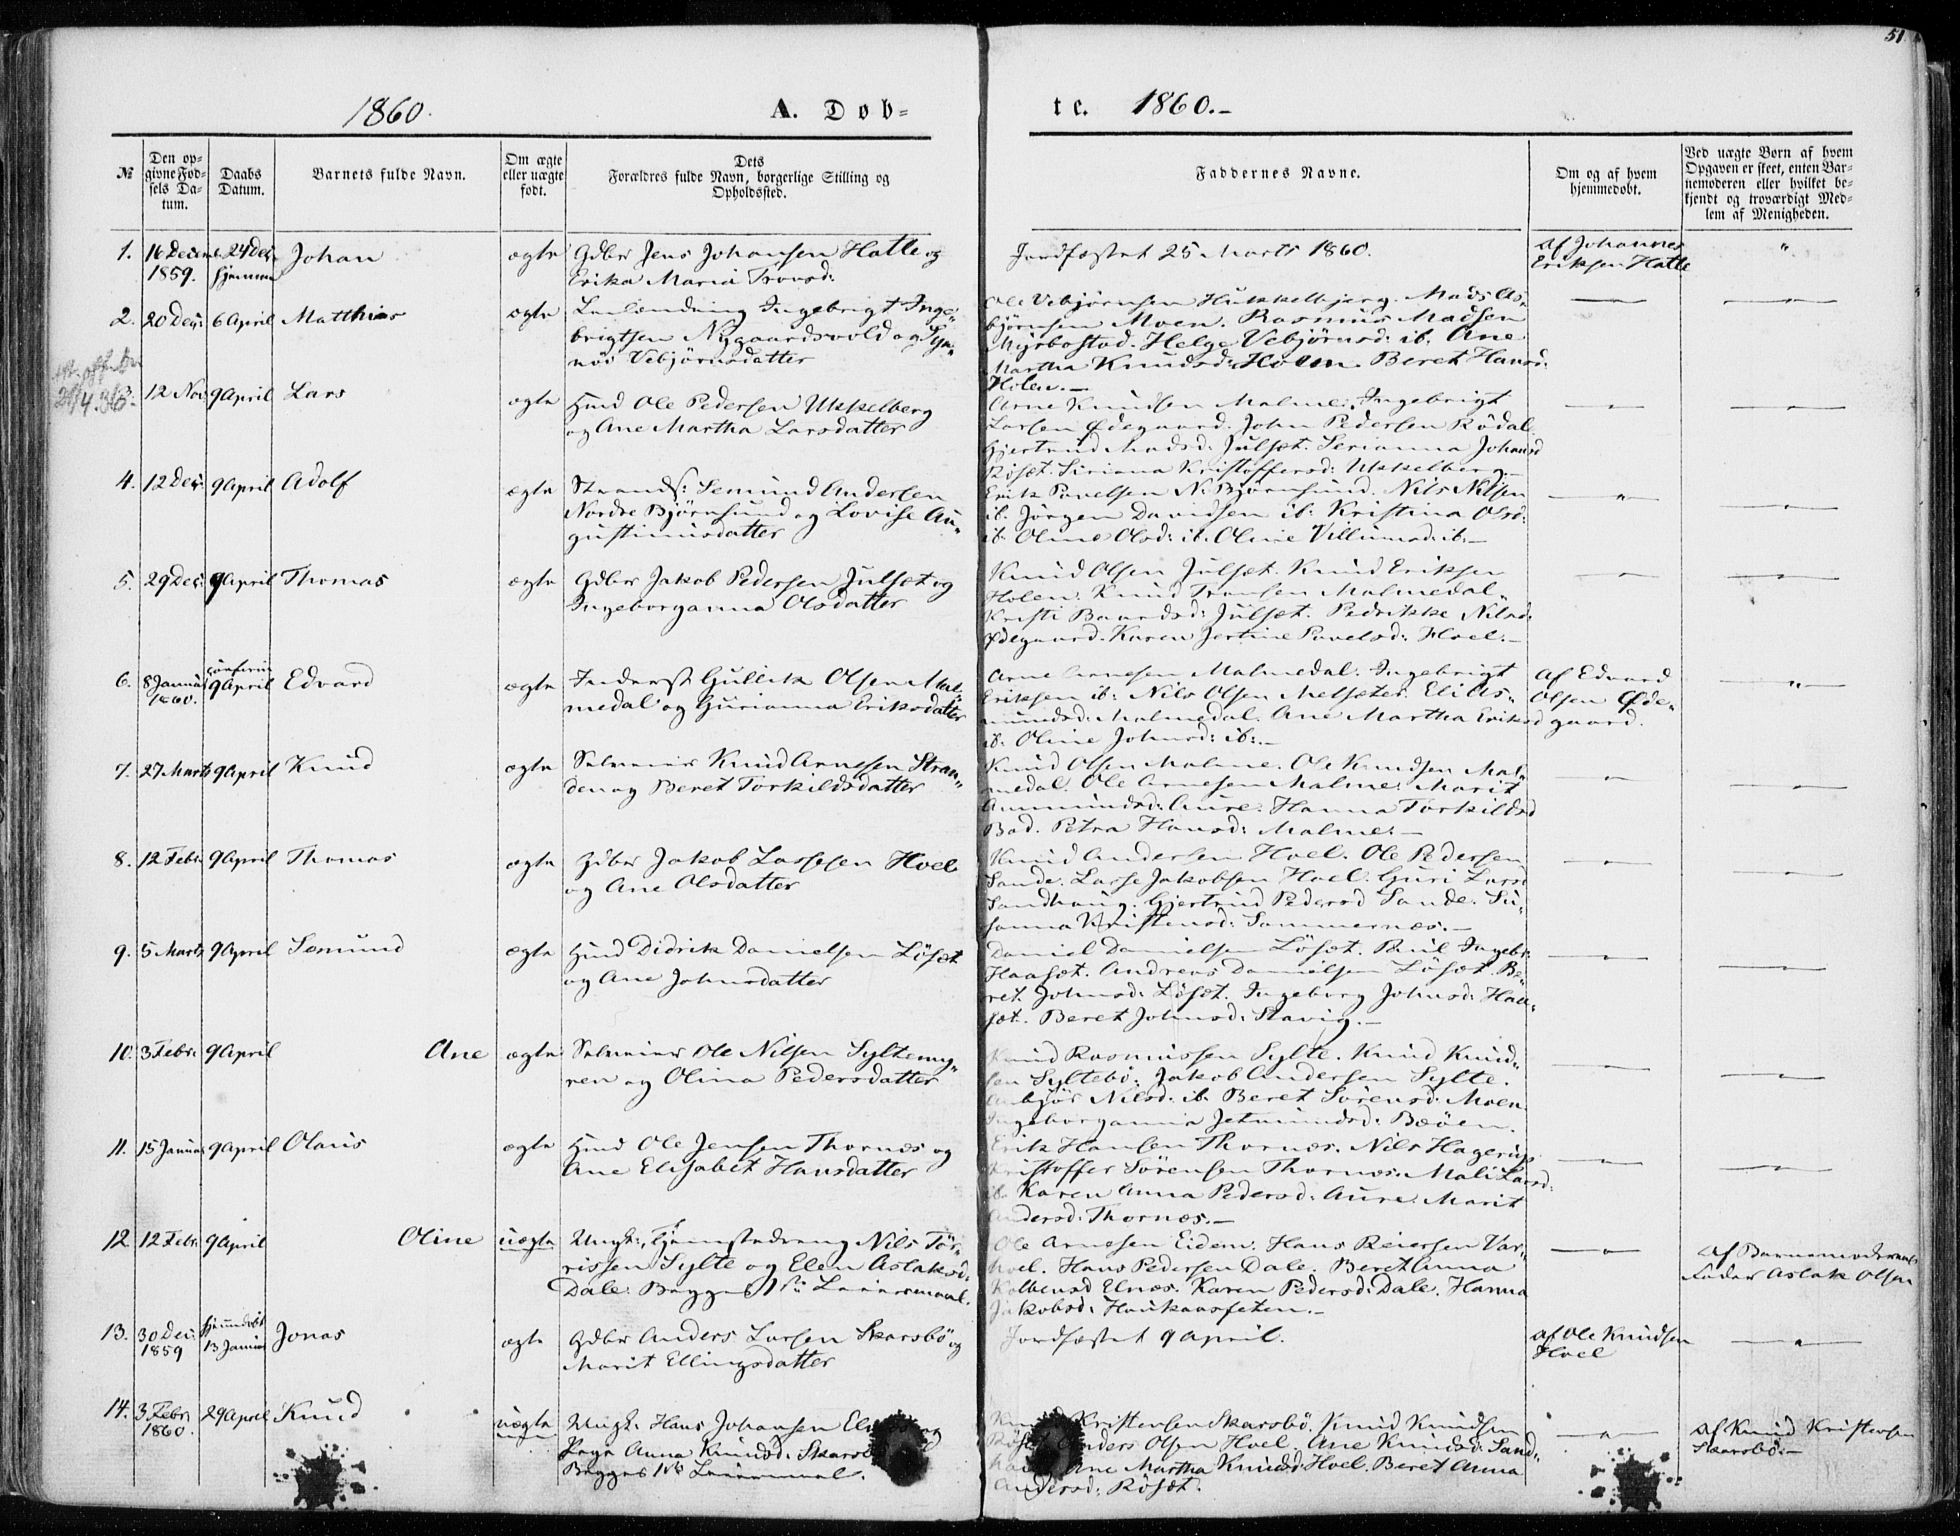 51
1860.
A. Døb-
te. 1860.-
№
Den op-
givne Fød-
sels Da-
tum.
Daabs
Datum.
Barnets fulde Navn.
Om ægte
eller uægte
født.
Dets
Forældres fulde Navn, borgerlige Stilling og
Opholdssted.
Faddernes Navne.
Om og af hvem
hjemmedøbt.
Ved uægte Børn af hvem
Opgaven er skeet, enten Bar-
nemoderen eller hvilket be-
kjendt og troværdigt Med-
lem af Menigheden.
1. 16 Decem 1859. 24 Dec. hjemme Johan ægte Gdbr Jens Johansen Hatle og
Erika Maria Trondsd:
Jordfæstet 25 Marts 1860.
Af Johannes
Eriksen Hatle
2. 20 Dec: 6 April Matthias ægte Ingebrigt Inge-
brigtsen Nygaardsvold og Syn-
növ Vebjörnsdatter
Ole Vebjörnsen Hukkelbjerg. Mads As-
björnsen Moen. Rasmus Madsen
Myrbostad. Helge Vebjörnsd: ib. Ane
Martha Knudsd: Holen. Beret Hansd:
Holen.-
3. 12 Nov. 9 April Lars ægte Huusmd Ole Pedersen Ukkelberg
og Ane Martha Larsdatter
Arne Knudsen Malme. Ingebrigt
Larsen Ødegaard. John Pedersen Rödal
Gjertrud Madsd: Julset. Serianna Johansd
Röset. Siriana Kristoffersd: Ukkelberg.-
4. 12 Dec: 9 April Adolf ægte Strands: Semund Andersen
Nordre Björnsund og Lovise Au-
gustinusdatter
Erik Pavelsen N. Björnsund. Nils Nilsen
ib. Jörgen Davidsen ib: Kristina Olsd:
ib. Oline Olsd: ib. Oline Villumsd: ib.-
5. 29 Dec: 9 April Thomas ægte Gdbr Jakob Pedersen Julset og
Ingeborganna Olsdatter
Knud Olsen Julset. Knud Eriksen
Holen. Knud Tronsen Malmedal.
Kristi Baardsd: Julset. Pedrikke Nilsd:
Ødegaard. Karen Jertine Pavelsd: Hoel.-
6. 8 Januar 1860. 9 April Edvard ægte Inderst Gullik Olsen Mal-
medal og Gurianna Eriksdatter
Arne Arnesen Malmedal. Ingebrigt
Eriksen ib: Nils Olsen Melseter. Eli As-
mundsd: Malmedal. Ane Martha Eriksd
ib: Oline Johnsd: ib:-
Af Edvard
Olsen Øde-
gaard.
7. 27 Marts 9 April Knud ægte Selveier Knud Arnesen Stran-
den og Beret Torkildsdatter
Knud Olsen Malme. Ole Knudsen Mal-
medal. Ole Arnesen Malme. Marit
Ammundsd: Aure. Hanna Torkildsd
Bod. Petra Hansd: Malme.-
8. 12 Febr. 9 April Thomas ægte Gdbr Jakob Lassesen Hoel
og Ane Olsdatter
Knud Andersen Hoel. Ole Pedersen
Sande. Lasse Jakobsen Hoel. Guri Larsd
Sandhaug. Gjertrud Pedersd Sande. Su-
sanna Kristensd: Sammernæs.-
9. 5 Marts 9 April Semund ægte Huusmd Didrik Danielsen Löset
og Ane Johnsdatter
Daniel Danielsen Löset. Ingebr.
Haaset. Andreas Danielsen Löset. Be-
ret Johnsd: Löset. Ingeborg Johnsd: Haa-
set. Beret Johnsd: Stavig.-
10. 3 Febr. 9 April Ane ægte Selveier Ole Nilsen Syltemy-
ren og Olina Pedersdatter
Knud Rasmussen Sylte. Knud Knud-
sen Syltebö. Jakob Andersen Sylte.
Anbjör Nilsd: ib. Beret Sörensd: Moen.
Ingeborganna Jetmundsd: Bøöen.
11. 15 Januar 9 April Olaus ægte Huusmd Ole Jensen Thornæs og
Ane Elisabet Hansdatter
Erik Hansen Thornæs. Nils Hagerup
Kristoffer Sörensen Thornæs. Mali Larsd:
ib. Karen Anna Pedersd: Aure. Marit
Andersd: Thornæs.-
12. 12 Febr. 9 April Oline uægte Ungk:, Tjenestedreng Nils Tör-
rissen Sylte og Elen Aslaksd:
Dale. Begges 1ste Leiermaal.
Ole Arnesen Eidem. Hans Reiersen Var-
hoel. Hans Pedersen Dale. Beret Anna
Kolbensd Elnæs. Karen Pedersd: Dale. Hanna
Jakobsd: Haukaasfeten.-
Af Barnemoderens
Fader Aslak Olsen
13. 30 Dec. 1859 hjemmedöbt 13 Januar Jonas ægte Gdbr Anders Larsen Skarsbö og
Marit Ellingsdatter
Jordfæstet 9 April.
Af Ole Knudsen
Hoel
14. 3 Febr. 1860. 29 April Knud uægte Ungk. Hans Johansen og
Pige Anna Knudsd: Skarsb
Begges 1ste Leiermaal.
Kristensen Skarsbö. Knud Knudsen
Röset. Anders Olsen Hoel. Ane Knudsd: Sand-
Ane Martha Knudsd Hoel. Beret Anna
Andersd: Röset.
Af Knud Kristensen
Skarsbö.-